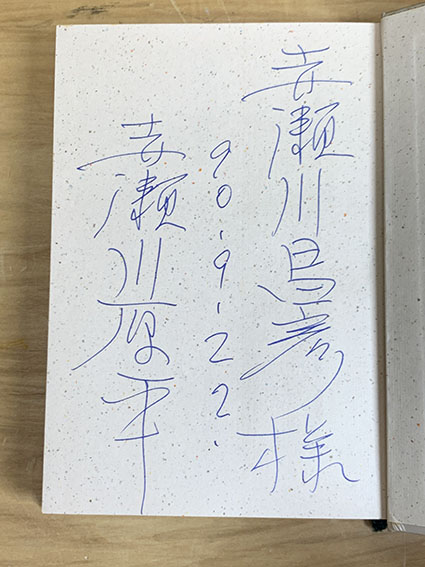 赤瀬川昌彦様
90.9.22.
赤瀬川原平